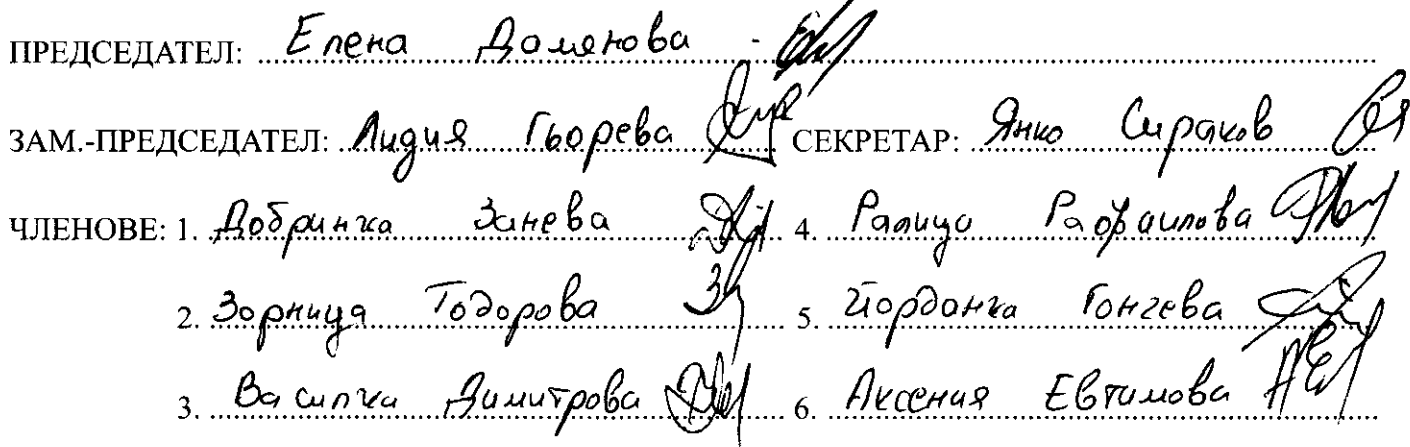 ПРЕДСЕДАТЕЛ: Елена Дамянова
ЗАМ.-ПРЕДСЕДАТЕЛ: Лидия Гьорева СЕКРЕТАР: Янко Сираков
ЧЛЕНОВЕ: 1. Добринка Занева 4. Ралица Рафаилова
2. Зорница Тодорова 5. Йорданка Гончева
3. Василка Димитрова 6. Аксения Евтимова